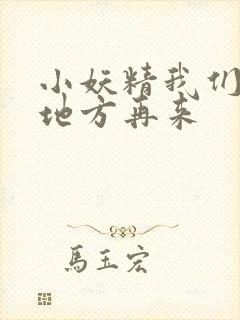 小妖精我们
地方再来
馬玉宏